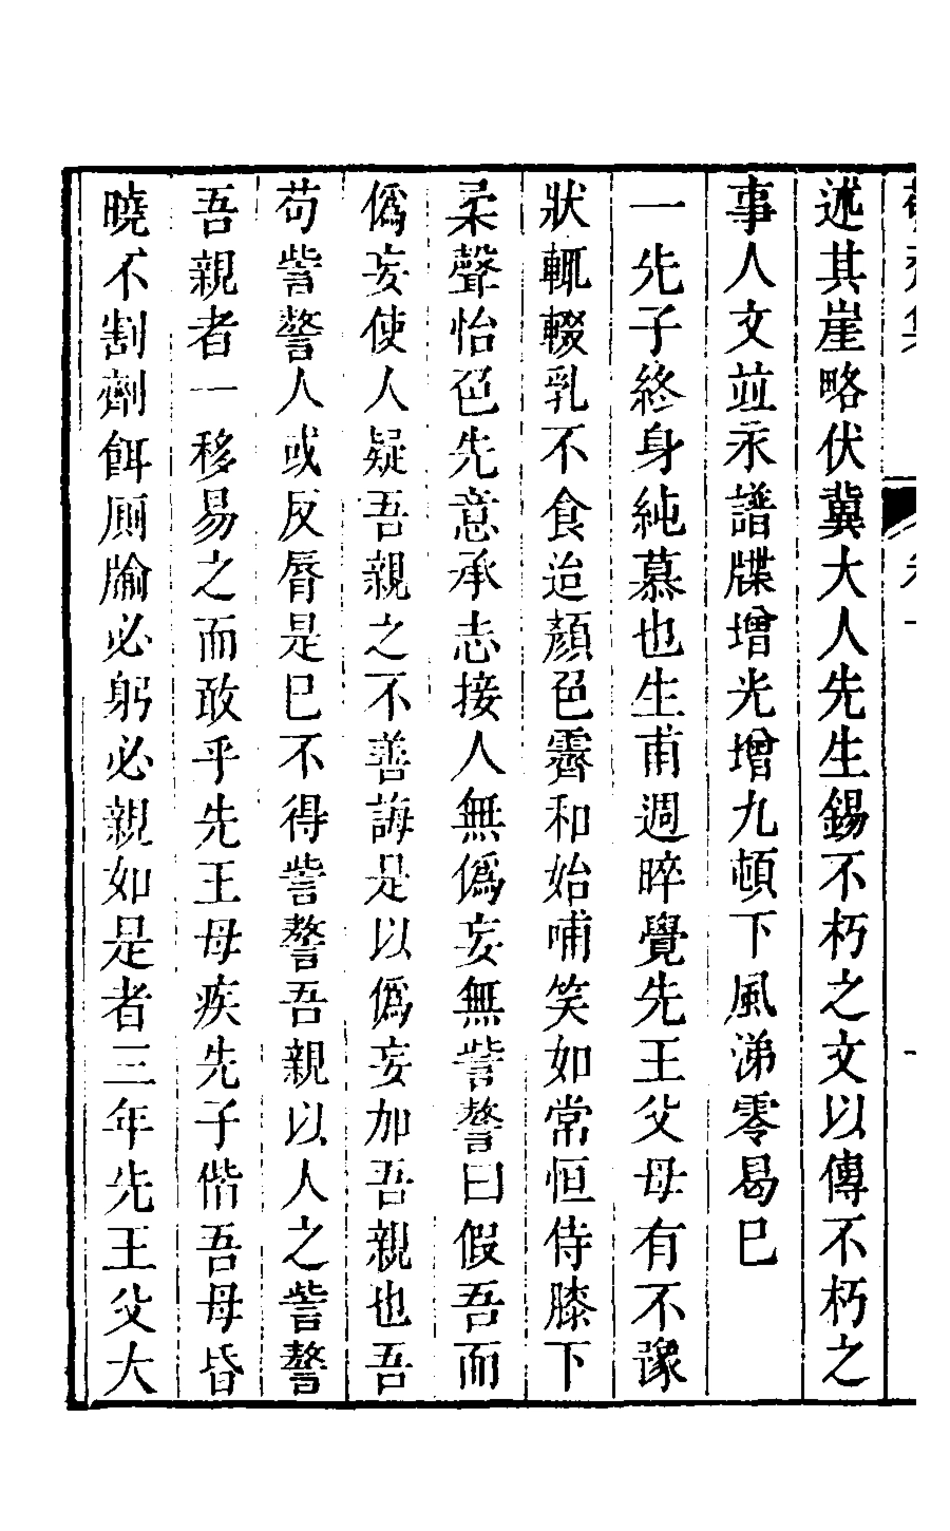 述其崖略伏冀大人先生錫不朽之文以傳不朽之
事人文並永譜牒增光增九頓下風涕零曷已
一先子終身純慕也生甫週晬覺先王父母有不豫
狀輒輟乳不食迨顏色霽和始哺笑如常恒侍膝下
柔聲怡色先意承志接人無僞妄無訾謷曰假吾而
僞妄使人疑吾親之不善誨是以僞妄加吾親也吾
苟訾謷人或反脣是已不得訾謷吾親以人之訾謷
吾親者一移易之而敢乎先王母疾先子偕吾母昏
曉不割劑餌厠牏必躬必親如是者三年先王父大